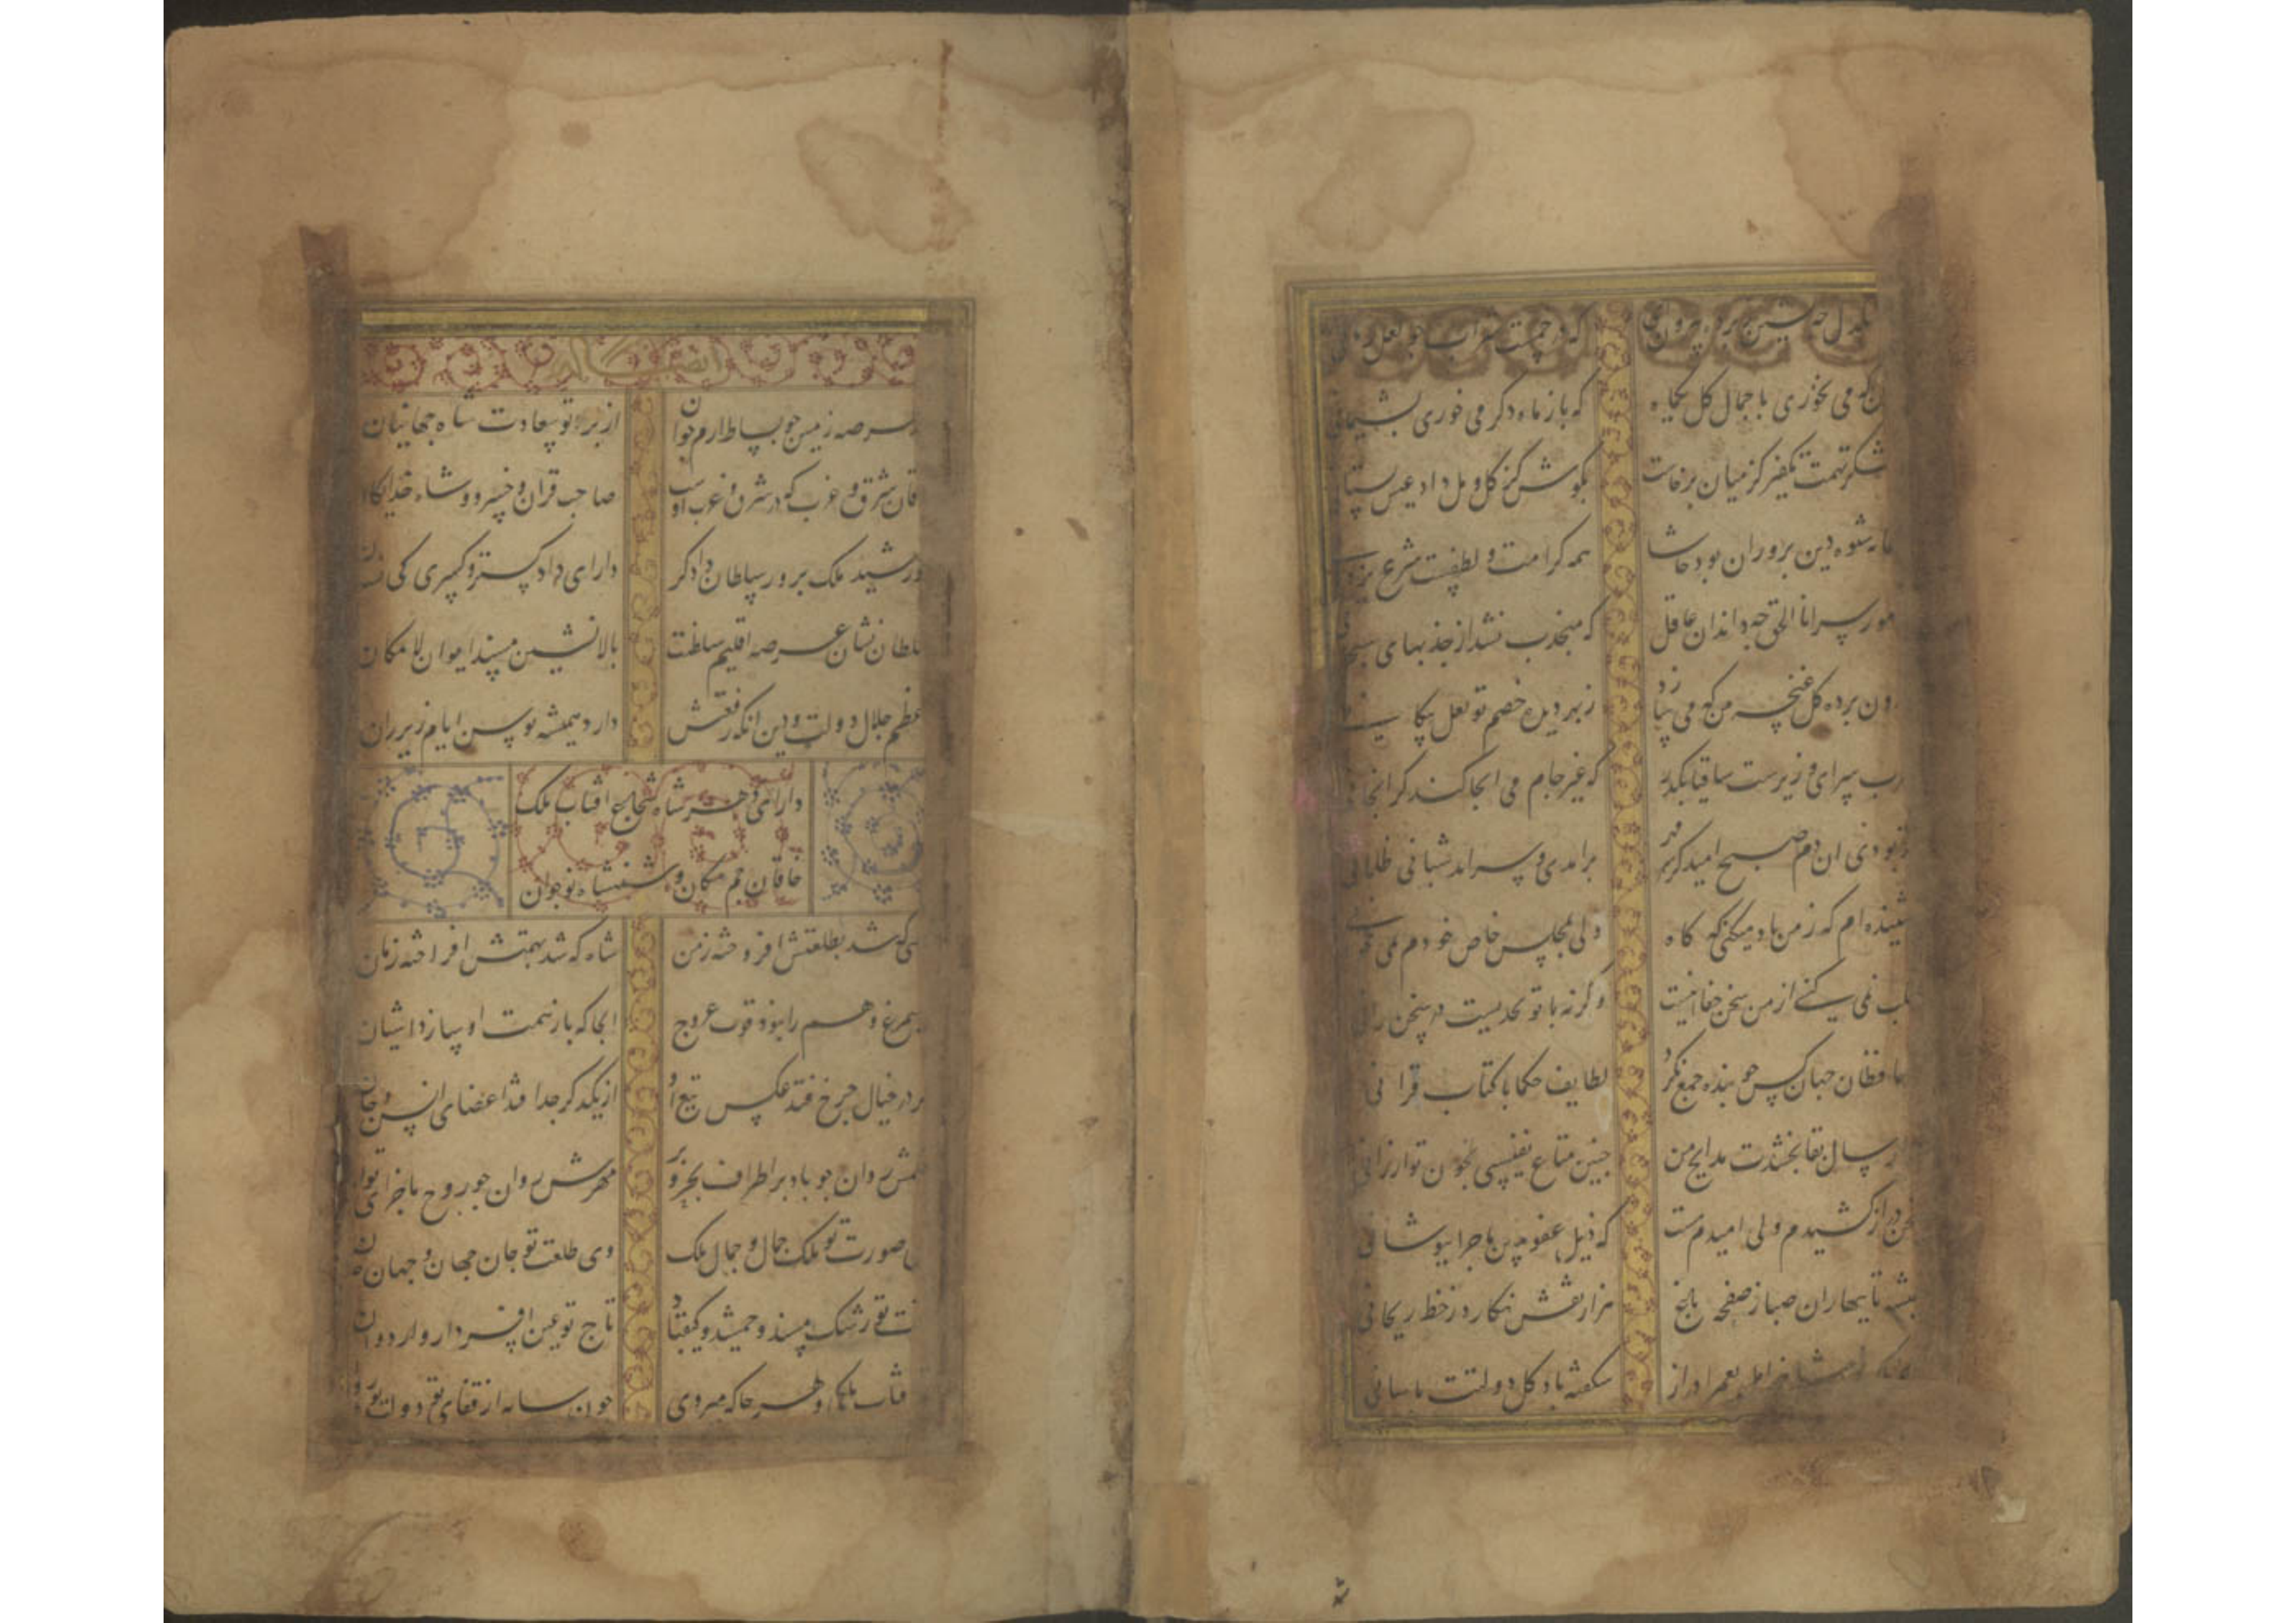 که می نخوری با جمال گل یکماه که باز ماه دگر می خوری پشیمانی
شکر تهمت تکفیر کز میان برخاست بکوش کز گل و مل داد عیش بستانی
شیوه دین پروران بود حاشا همه کرامت و لطفست شرع
سر انا الحق چه داند ان غافل که منجذب نشد از جذبهای
برده گل غنچه من که می سازد ز بهر دیده خصم تو لعل پیکانی
سرای وزیرست ساقیا مگذر که غیر جام می انجا کند
دم صبح امید کز مهر برامدی و سرامد شبان ظلمانی
شنیده ام که ز من یاد میکنی گه گاه ولی بمجلس خاص خودم نمی
نمی کنی از من سخن جفا اینست وگرنه با تو چه بحثیست در سخن
حافظان جهان کس چو بنده جمع نکرد لطایف حکما با کتاب قرانی
سال بقا بخشدت مدایح من چنین متاع نفیسی بچون تو ارزانی
دراز کشیدم ولی امیدم هست که ذیل عفو بدین ماجرا بپوشانی
همیشه تا بهاران صبا ز صفحه باغ هزار نقش نگارد ز خط ریحانی
بعمر دراز شکفته باد گل دولتت باسانی
عرصه زمین چو بساط ارم جوان از پرتو سعادت شاه جهانیان
شرق و غرب که در شرق و غرب اوست صاحب قران و خسرو و شاه خدایگان
خورشید ملک پرور سلطان دادگر دارای دادگستر و کسری کی نشان
سلطان نشان عرصه اقلیم سلطنت بالا نشین مسند ایوان لامکان
اعظم جلال دولت و دین انکه رفعتش دارد همیشه توسن ایام زیر ران
دارای دهر شاه شجاع افتاب ملک
خاقان جم مکان و شهنشاه نوجوان
که شد بطلعتش افروخته زمن شاه که شد بهمتش افراخته زمان
سیمرغ وهم را نبود قوت عروج انجا که باز همت او سازد اشیان
در خیال چرخ فتد عکس تیغ او از یکدگر جدا فتد اعضای انس و جان
روان چو باد بر اطراف بحر و بر مهرش روان چو روح
صورت تو ملک جمال و جمال ملک وی طلعت تو جان جهان و جهان جان
تو رشک مسند جمشید و کیقباد تاج تو غبن افسر دارا و اردوان
ملکی و هر جا که میروی چون سایه از قفای تو دولت بود